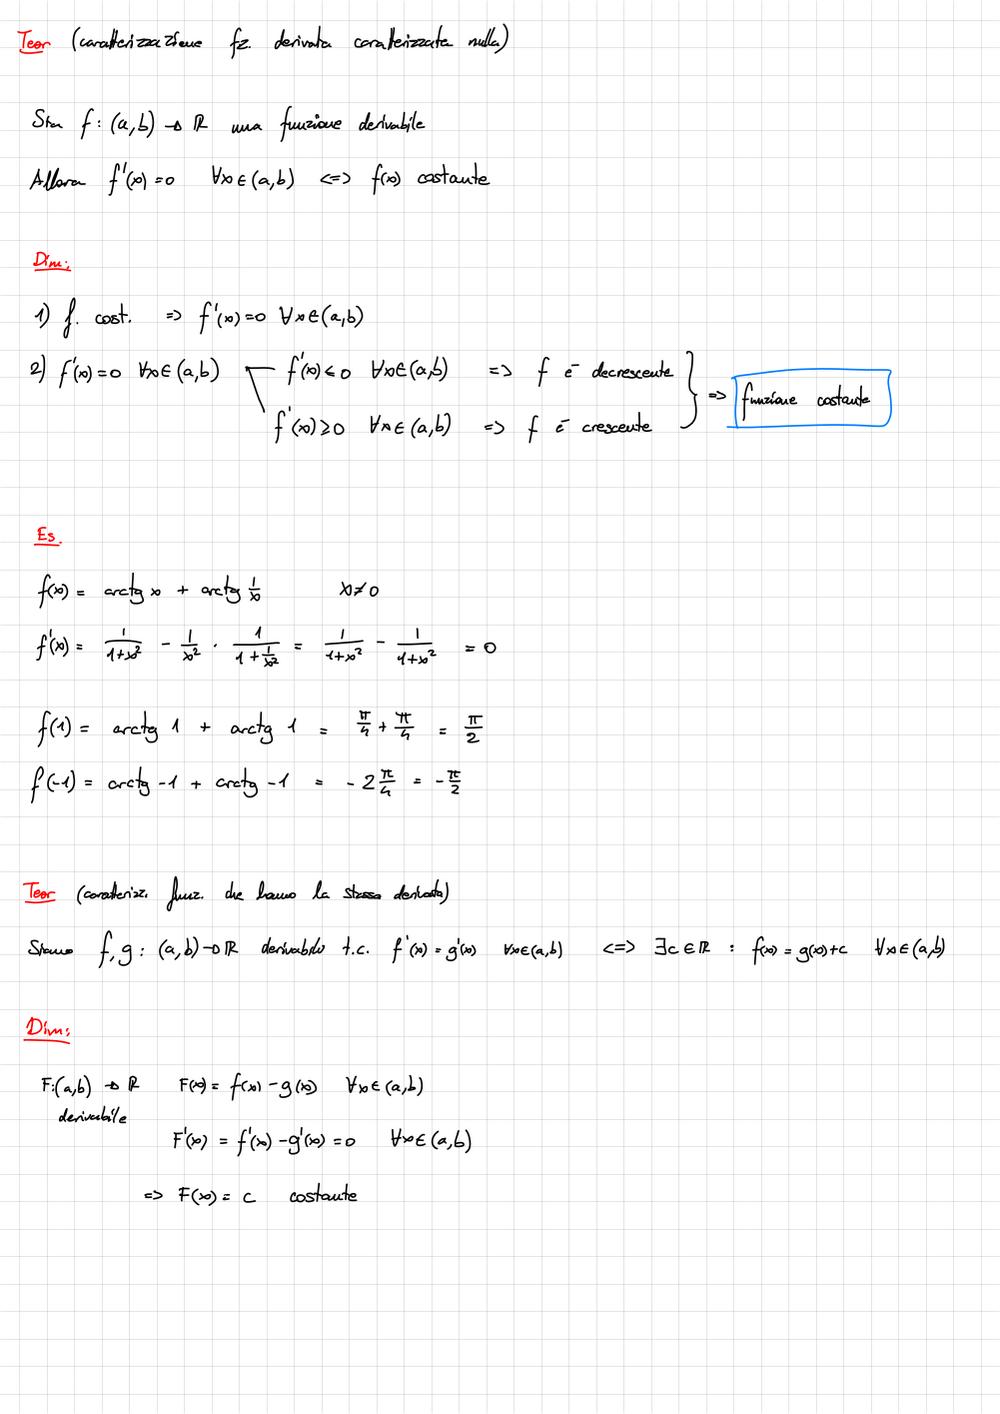 Teor (caratterizzazione fz. derivata caratterizzata nulla)
Sia f: (a,b) → ℝ una funzione derivabile
Allora f'(x)=0 ∀x∈(a,b) <=> f(x) costante
Dim:
1) f. cost. => f'(x)=0 ∀x∈(a,b)
2) f'(x)=0 ∀x∈(a,b) f'(x)≤0 ∀x∈(a,b) => f è decrescente
f'(x)≥0 ∀x∈(a,b) => f è crescente } => funzione costante
Es.
f(x) = arctg x + arctg 1/x x≠0
f'(x) = 1/(1+x²) - 1/x² · 1/(1+1/x²) = 1/(1+x²) - 1/(1+x²) = 0
f(1) = arctg 1 + arctg 1 = π/4 + π/4 = π/2
f(-1) = arctg -1 + arctg -1 = -2 π/4 = -π/2
Teor (caratteriz. funz. che hanno la stessa derivata)
Siano f,g: (a,b)→ℝ t.c. f'(x) = g'(x) ∀x∈(a,b) <=> ∃c∈ℝ : f(x) = g(x)+c ∀x∈(a,b)
Dim:
F:(a,b) → ℝ F(x) = f(x) - g(x) ∀x∈(a,b)
derivabile
F'(x) = f'(x) - g'(x) = 0 ∀x∈(a,b)
=> F(x) = c costante